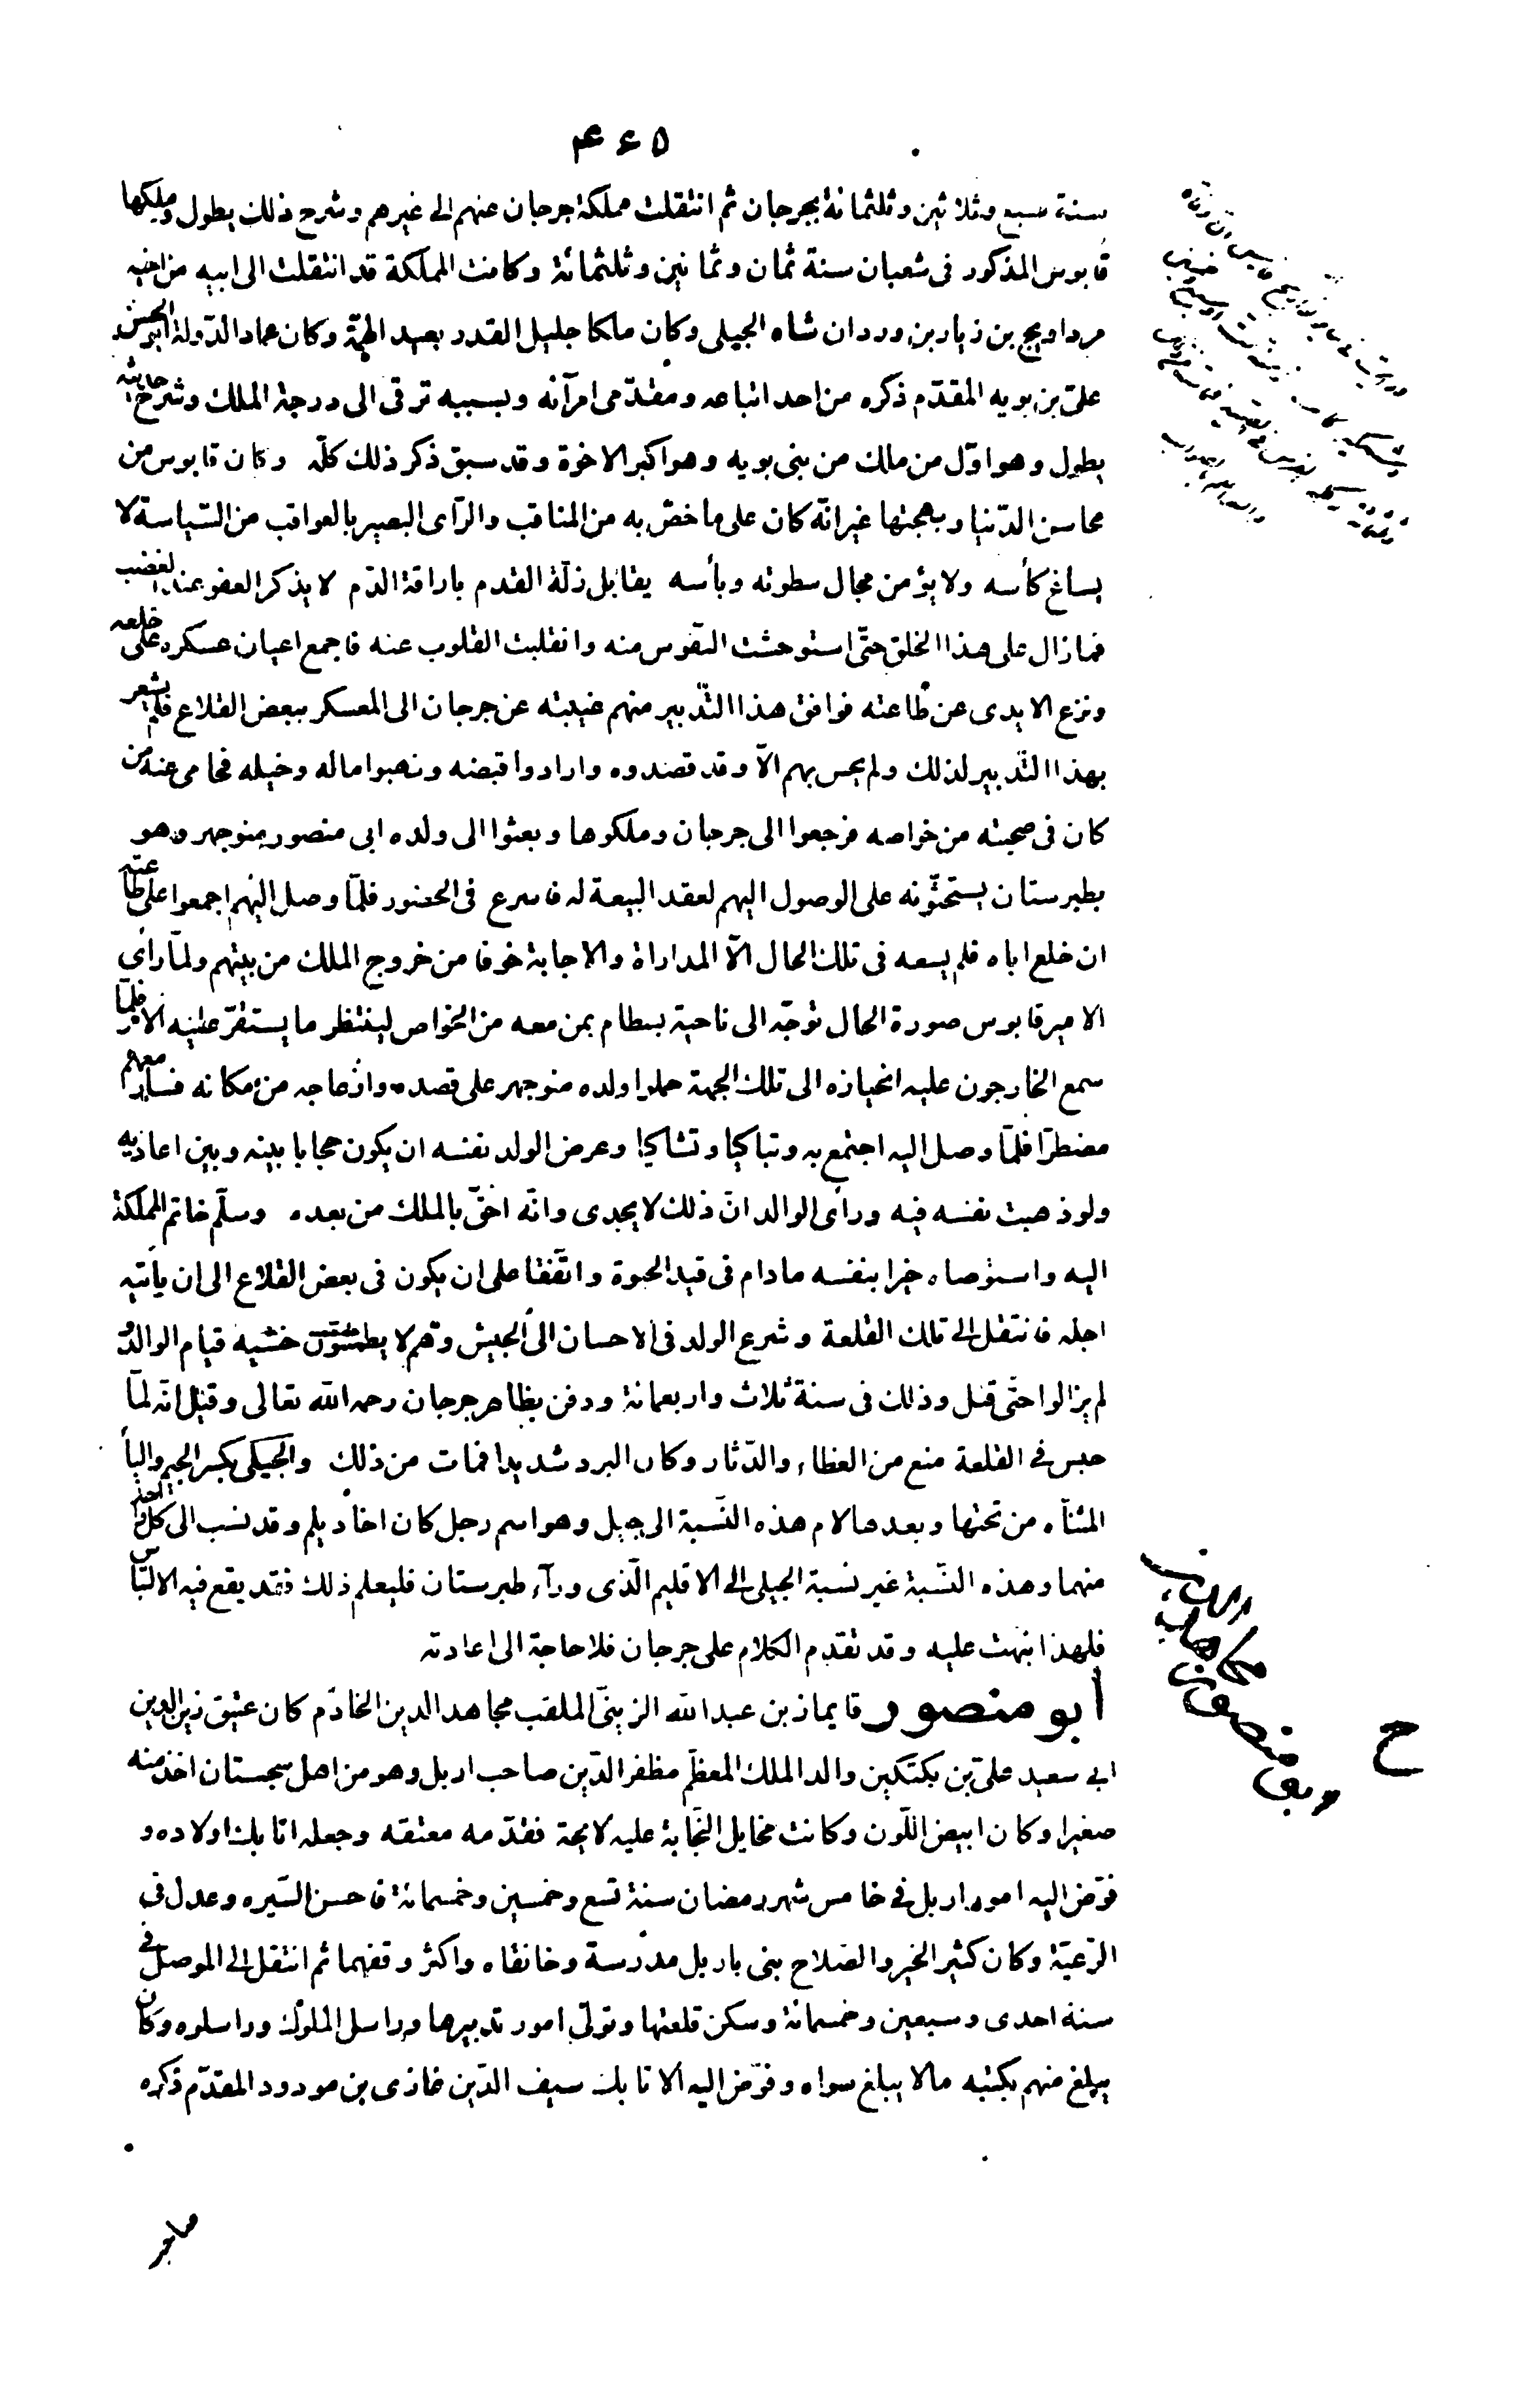 ٤٤٥
سنة سبع وثلاثين وثلثمائة بجرجان ثم انتقلت مملكة جرجان عنهم الى غيرهم وشرح ذلك يطول وملكها
قابوس المذكور فى شعبان سنة ثمان وثمانين وثلثمائة وكانت المملكة قد انتقلت الى ابيه من اخيه
مرداويج بن زيار بن وردان شاه الجيلى وكان ملكا جليل القدر بعيد الهمّة وكان عماد الدّولة ابو الحسن
علىّ بن بويه المقدّم ذكره من احد اتباعه ومقدّمى امرآئه وبسببه ترقى الى درجة الملك وشرح حديثه
يطول وهو اوّل من ملك من بنى بويه وهو اكبر الاخوة وقد سبق ذكر ذلك كلّه وكان قابوس من
محاسن الدّنيا وبهجتها غير انّه كان على ما خصّ به من المناقب والرّاى البصير بالعواقب من السّياسة لا
يساغ كأسه ولا يؤمن مجال سطوته وبأسه يقابل زلّة القدم باراقة الدّم لا يذكر العفو عند الغضب
فما زال على هذا الخلق حتّى استوحشت النّفوس منه وانقلبت القلوب عنه فاجمع اعيان عسكره على خلعه
ونزع الايدى عن طاعته فوافق هذا التّدبير منهم غيبته عن جرجان الى المعسكر ببعض القلاع فلم يشعر
بهذا التّدبير لذلك ولم يحس بهم الّا وقد قصدوه وارادوا قبضه ونهبوا ماله وخيله فحامى عنه من
كان فى صحبته من خواصه فرجعوا الى جرجان وملكوها وبعثوا الى ولده ابى منصور منوجهر وهو
بطبرستان يستحثّونه على الوصول اليهم لعقد البيعة له فاسرع فى الحضور فلمّا وصل اليهم اجمعوا على طاعته
ان خلع اباه فلم يسعه فى تلك الحال الّا المداراة والاجابة خوفا من خروج الملك من بيتهم ولمّا رأى
الامير قابوس صورة الحال توجّه الى ناحية بسطام بمن معه من الخواص لينتظر ما يستقرّ عليه الامر فلمّا
سمع الخارجون عليه انحيازه الى تلك الجهة حملوا ولده منوجهر على قصده وازعاجه من مكانه فسار معهم
مضطرّا فلمّا وصل اليه اجتمع به وتباكيا وتشاكيا وعرض الولد نفسه ان يكون حجابا بينه وبين اعاديه
ولو ذهبت نفسه فيه ورأى الوالد انّ ذلك لا يجدى وانّه احقّ بالملك من بعده وسلّم خاتم المملكة
اليه واستوصاه خيرا بنفسه ما دام فى قيد الحيوة واتّفقا على ان يكون فى بعض القلاع الى ان يأتيه
اجله فانتقل الى تلك القلعة وشرع الولد فى الاحسان الى الجيش وهم لا يطمئنّون خشية قيام الوالد و
لم يزالوا حتّى قتل وذلك فى سنة ثلاث واربعمائة ودفن بظاهر جرجان رحمه الله تعالى وقيل انّه لمّا
حبس فى القلعة منع من الغطاء والدّثار وكان البرد شديدا فمات من ذلك والجيلى بكسر الجيم واليأ
المثنّاه من تحتها وبعدها لام هذه النّسبة الى جيل وهو اسم رجل كان اخا ديلم وقد نسب الى كلّ واحد
منهما وهذه النّسبة غير نسبة الجيلى الى الاقليم الّذى ورآء طبرستان فليعلم ذلك فقد يقع فيه الالتباس
فلهذا نبّهت عليه وقد تقدم الكلام على جرجان فلا حاجة الى اعادته
أبو منصور قايماز بن عبد الله الزينىّ الملقب مجاهد الدين الخادم كان عتيق زين الدين
ابى سعيد علىّ بن بكتكين والد الملك المعظّم مظفر الدّين صاحب اربل وهو من اهل سجستان اخذ منه
صغيرا وكان ابيض اللّون وكانت مخايل النّجابة عليه لايحة فقدّمه معتقه وجعله اتابك اولاده و
فوّض اليه امور اربل فى خامس شهر رمضان سنة تسع وخمسين وخمسمائة فاحسن السّيره وعدل فى
الرّعيّة وكان كثير الخير والصّلاح بنى باربل مدرسة وخانقاه واكثر وقفهما ثم انتقل الى الموصل فى
سنة احدى وسبعين وخمسمائة وسكن قلعتها وتولّى امور تدبيرها وراسل الملوك وراسلوه وكان
يبلغ منهم بكتبه مالا يبلغ سواه وفوّض اليه الاتابك سيف الدّين غازى بن مودود المقدّم ذكره
ح